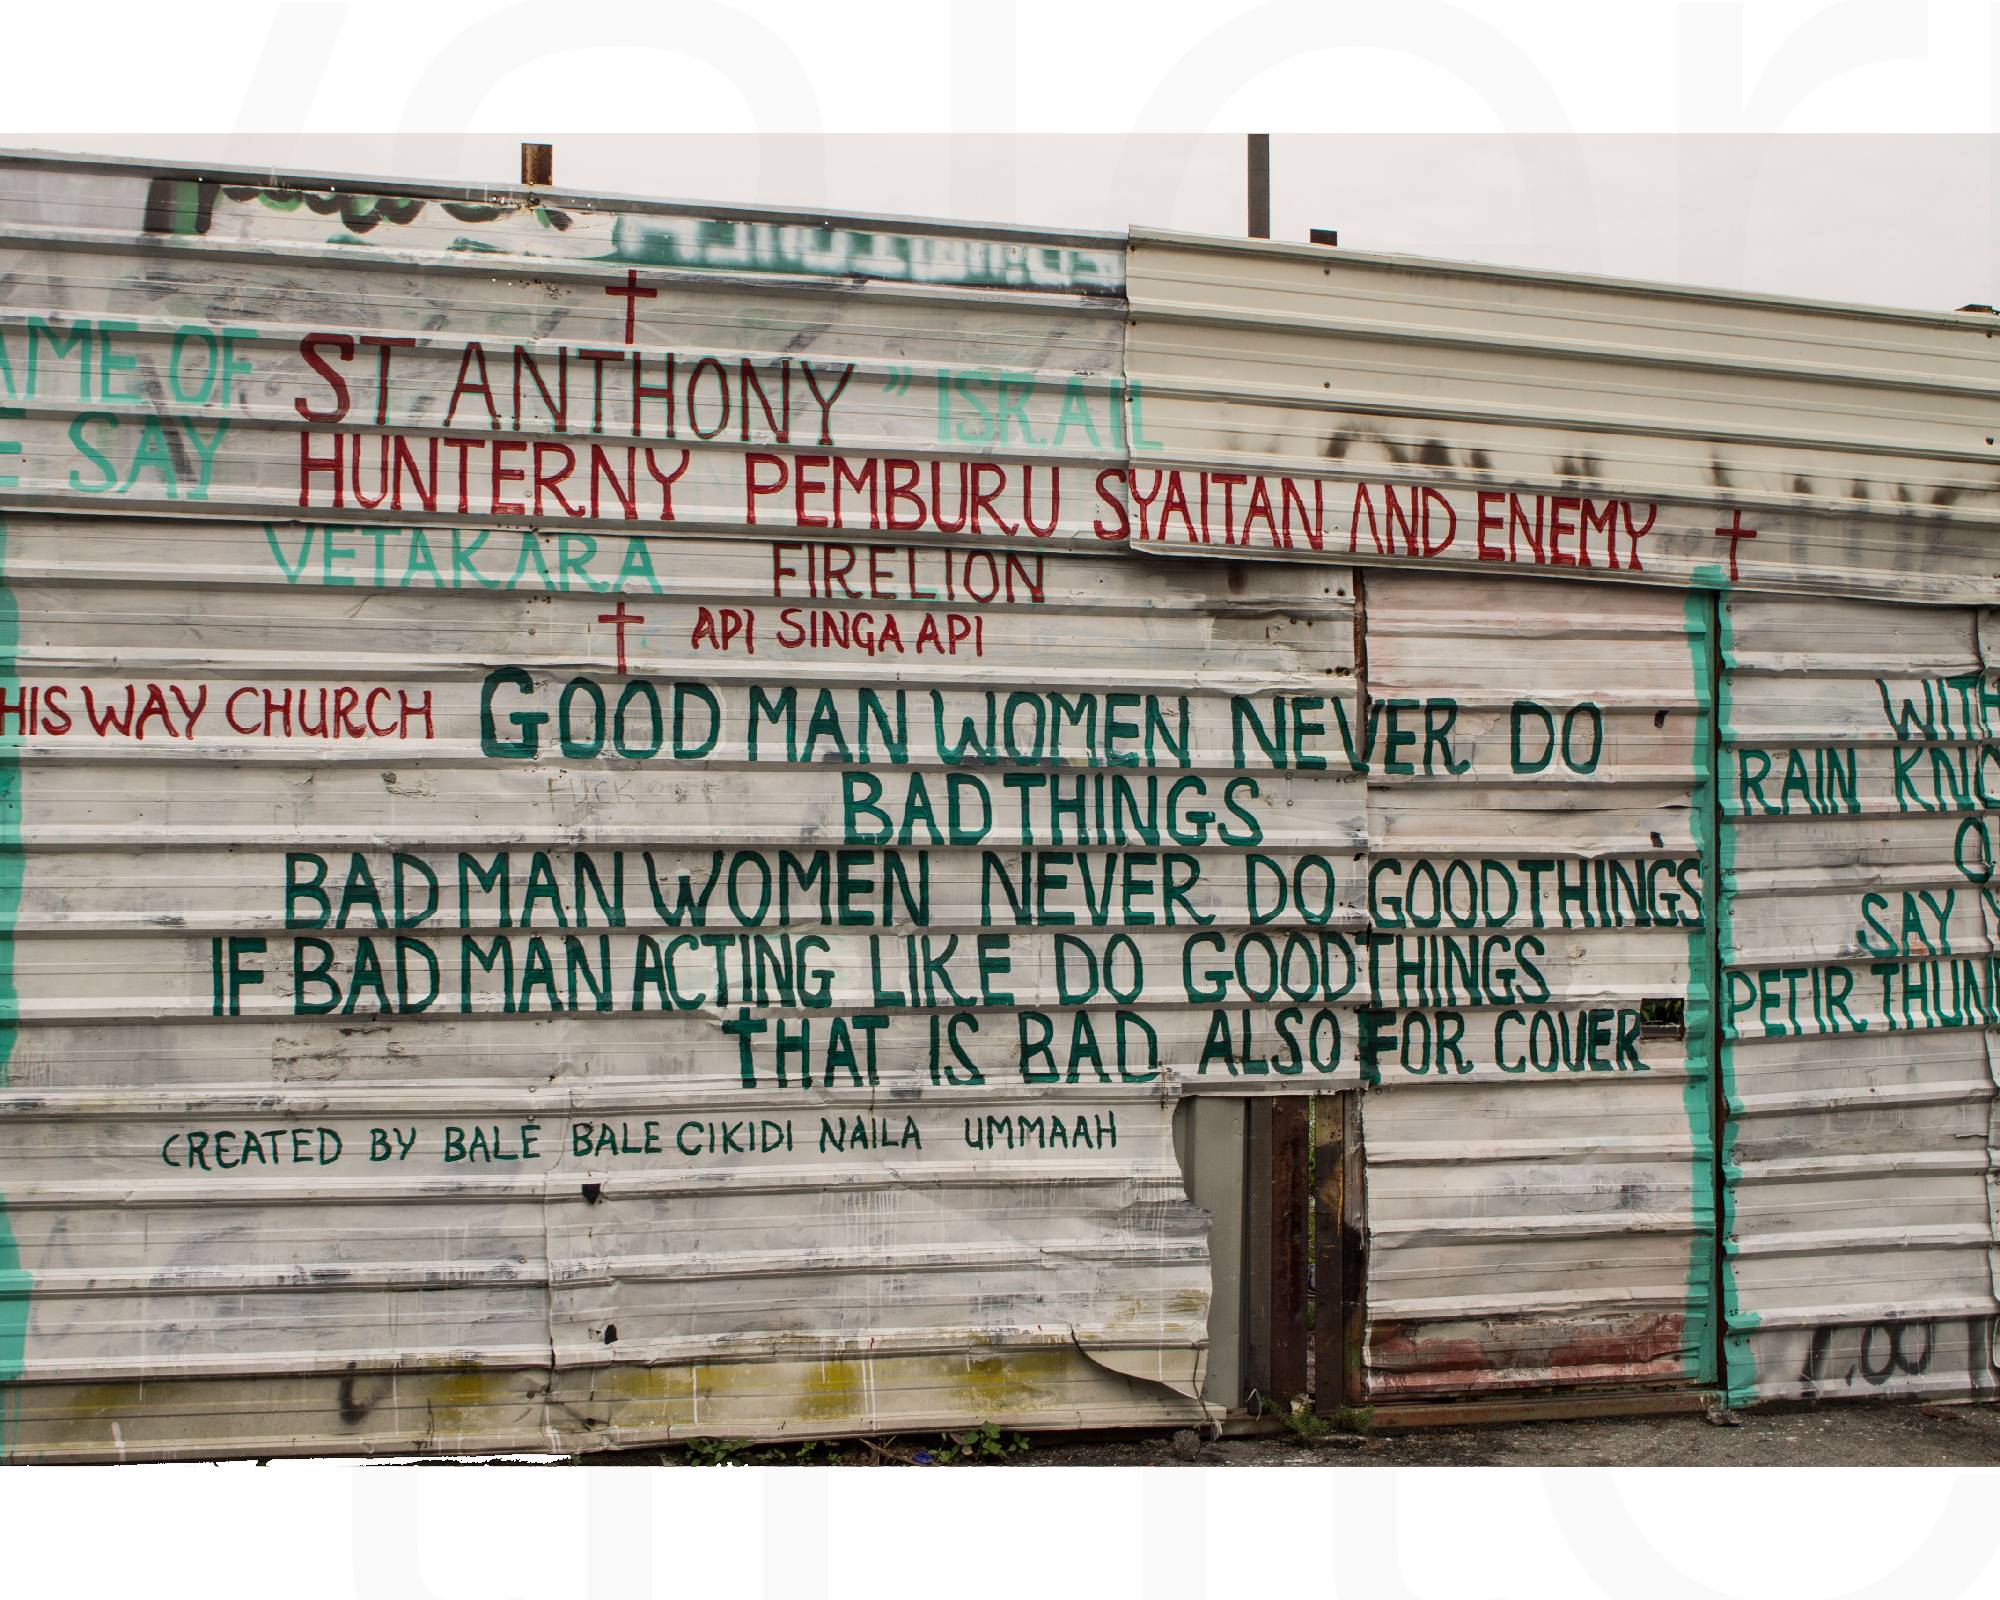 AME OF ST ANTHONY " ISRAIL
E SAY HUNTERNY PEMBURU SYAITAN AND ENEMY
VETAKARA FIRELION
API SINGA API
HIS WAY CHURCH GOOD MAN WOMEN NEVER DO
BAD THINGS
BAD MAN WOMEN NEVER DO GOOD THINGS
IF BAD MAN ACTING LIKE DO GOOD THINGS
THAT IS BAD ALSO FOR COVER
CREATED BY BALE BALE CIKIDI NAILA UMMAAH
WITH
RAIN KNO
O
SAY Y
PETIR THUN